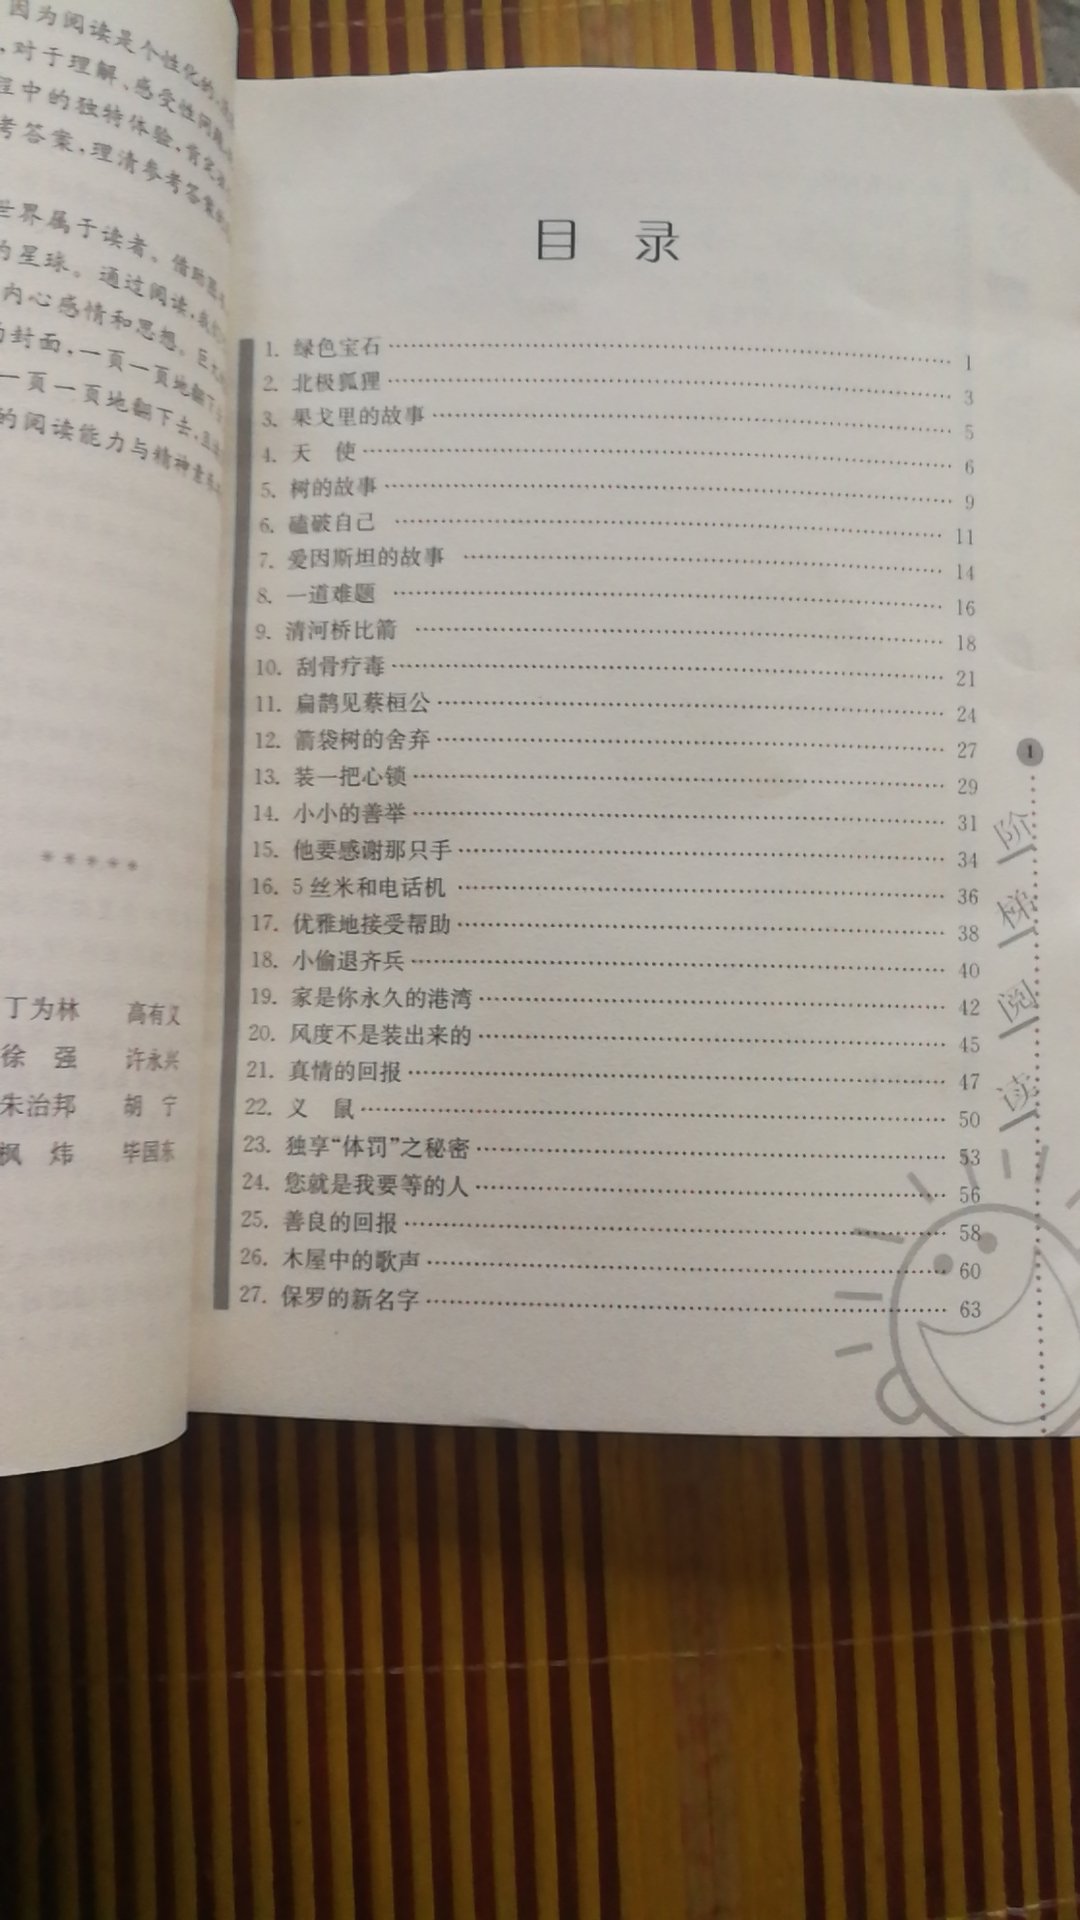 因为阅读是个性化的
,对于理解、感受性问题
程中的独特体验,肯定
考答案,理清参考答案
世界属于读者。借助
为星球。通过阅读,我们
内心感情和思想。巨大
的封面,一页一页地翻下
一页一页地翻下去,
的阅读能力与精神素养
*****
丁为林 高有义
徐 强 许永兴
朱治邦 胡 宁
枫 炜 毕国东
目 录
1. 绿色宝石 1
2. 北极狐狸 3
3. 果戈里的故事 5
4. 天 使 6
5. 树的故事 9
6. 磕破自己 11
7. 爱因斯坦的故事 14
8. 一道难题 16
9. 清河桥比箭 18
10. 刮骨疗毒 21
11. 扁鹊见蔡桓公 24
12. 箭袋树的舍弃 27
13. 装一把心锁 29
14. 小小的善举 31
15. 他要感谢那只手 34
16. 5丝米和电话机 36
17. 优雅地接受帮助 38
18. 小偷退齐兵 40
19. 家是你永久的港湾 42
20. 风度不是装出来的 45
21. 真情的回报 47
22. 义 鼠 50
23. 独享“体罚”之秘密 53
24. 您就是我要等的人 56
25. 善良的回报 58
26. 木屋中的歌声 60
27. 保罗的新名字 63
1
阶梯阅读